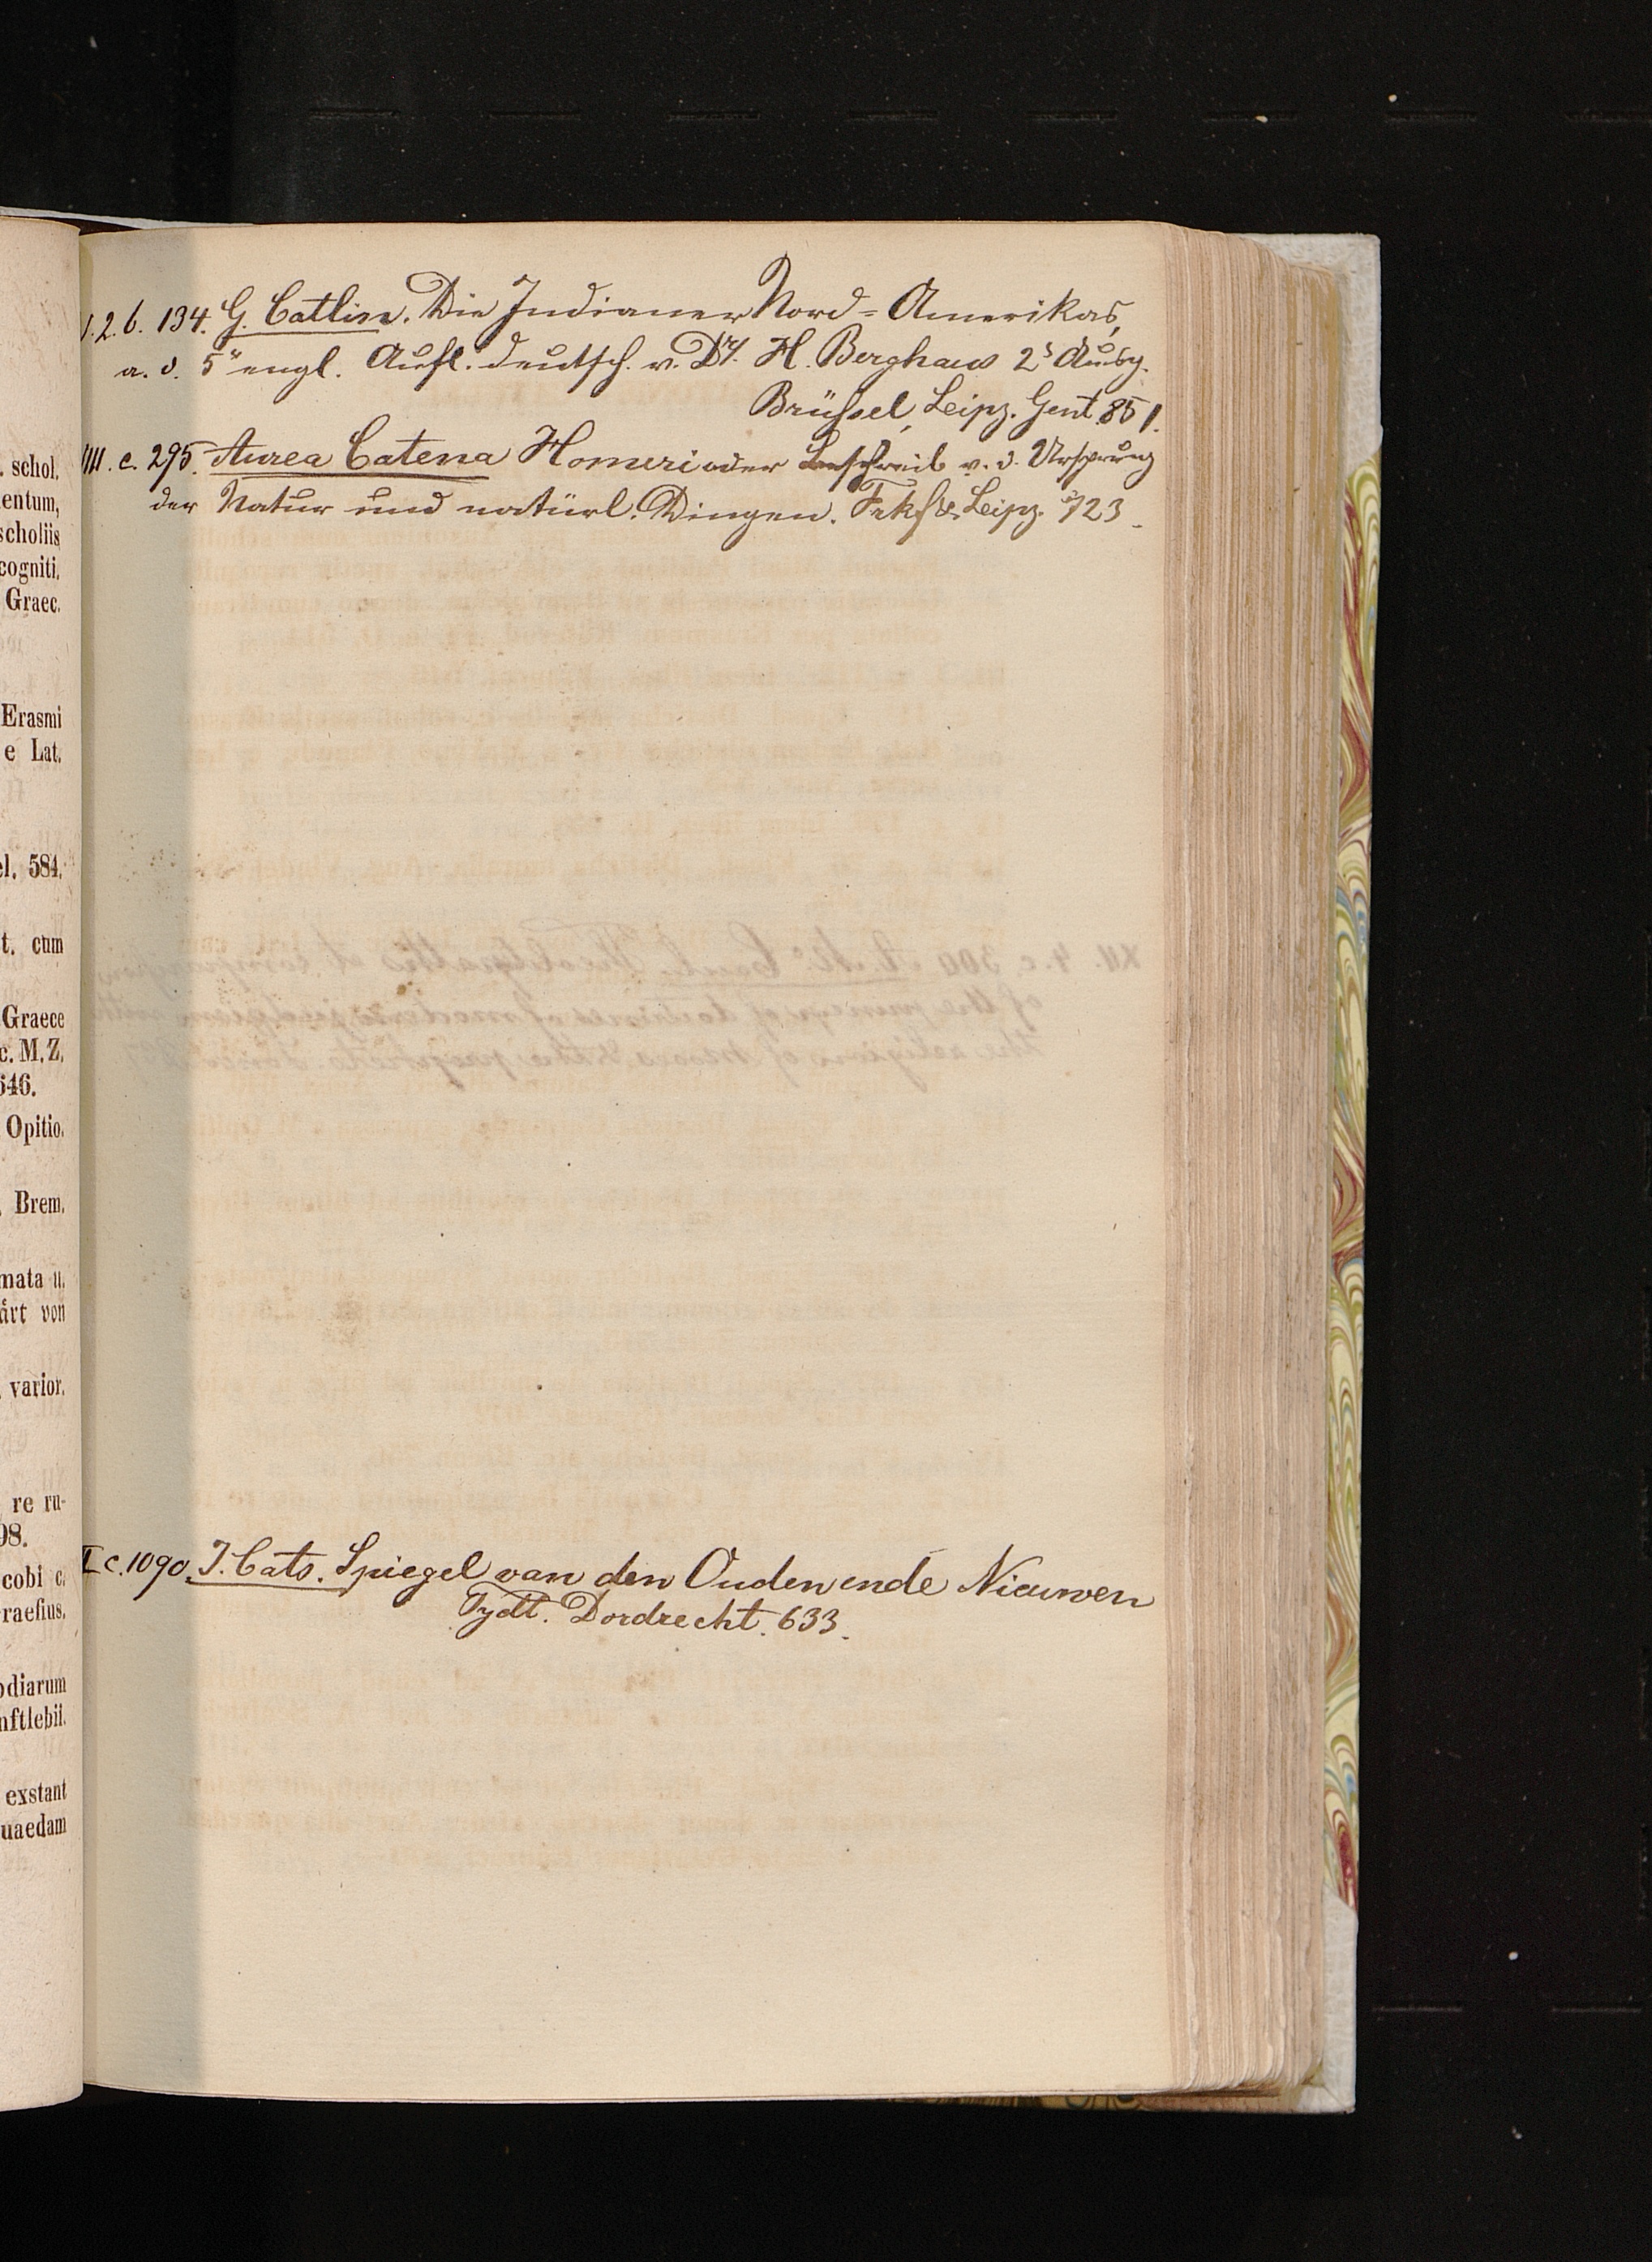 schol.
entum,
scholiis
cogniti,
Graec.
Erasmi
e Lat.
el. 584.
t. cum
Graece
c. M. Z.
646.
Opitio.
Brem.
mata u.
ärt von
varior.
re ru-
98.
cobi c.
raefius.
odiarum
nftlebii.
exstant
uaedam
.2.b. 134. G. Catlin. Die Indianer Nord=Amerikas,
a. d. 5n engl. Aufl. deutsch. v. Dr. H. Berghaus 2s Ausg.
Brüssel, Leipz. Gent. 851.
c. 295. Aurea Catena Homeri oder Beschreib v. d. Ursprung
der Natur und natürl. Dingen. Frkf & Leipz. 723.
I c. 1090. J. Cats. Spiegel van den Ouden ende Nieuwen
Tydt. Dordrecht. 633.